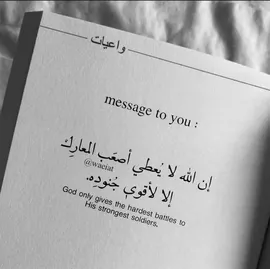 واعيات
message to you :
إن الله لا يُعطي أصعَب المعارِك
@waciat
إلا لأقوى جُنودِه.
God only gives the hardest battles to
His strongest soldiers.